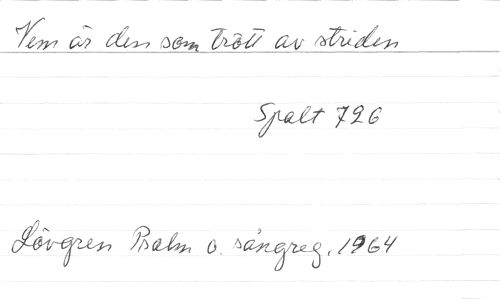 Vem är den som trött av striden
Spalt 726
Lövgren Psalm o. sångreg. 1964